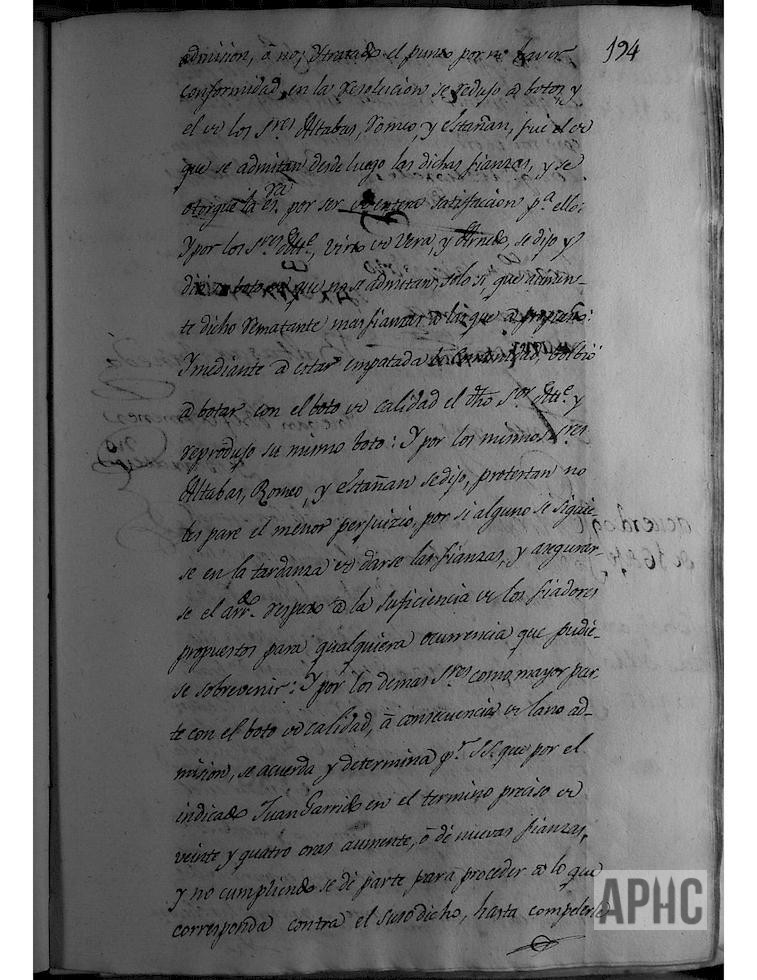 194
admision, ô no; y tratado el punto por no haver
conformidad en la resolucion se redujo a botos, y
el de los S.res Altabas, Romeo, y Estañan, fue el de
que se admitan desde luego las dichas fianzas, y se
otorgue la es.ra por ser de entera satisfacion p.a ello:
Y por los S.res Alc.e, de Vera, y se dijo y
dieron boto de que no se admitan, solo si que aumen-
te dicho Rematante mas fianzas a las que a propuesto:
Y mediante a estar empatada la bolbió
a botar con el boto de calidad el dho S.or Alc.e y
reprodujo su mismo boto: Y por los mismos S.res
Altabas, Romeo, y Estañan se dijo, protestan no
les pare el menor perjuizio, por si alguno se siguie-
se en la tardanza de darse las fianzas, y asegurar-
se el arr.do respecto a la suficiencia de los fiadores
propuestos para qualquiera ocurrencia que pudie-
se sobrevenir: Y por los demas S.res como mayor par-
te con el boto de calidad, â consecuencia de la no ad-
mision, se acuerda y determina p.r S.S. que por el
indicado Juan Garrido en el termino preciso de
veinte y quatro oras aumente, ô dé nuevas fianzas,
y no cumpliendo se dé parte para proceder a lo que
corresponda contra el susodicho, hasta compelerle
APHC